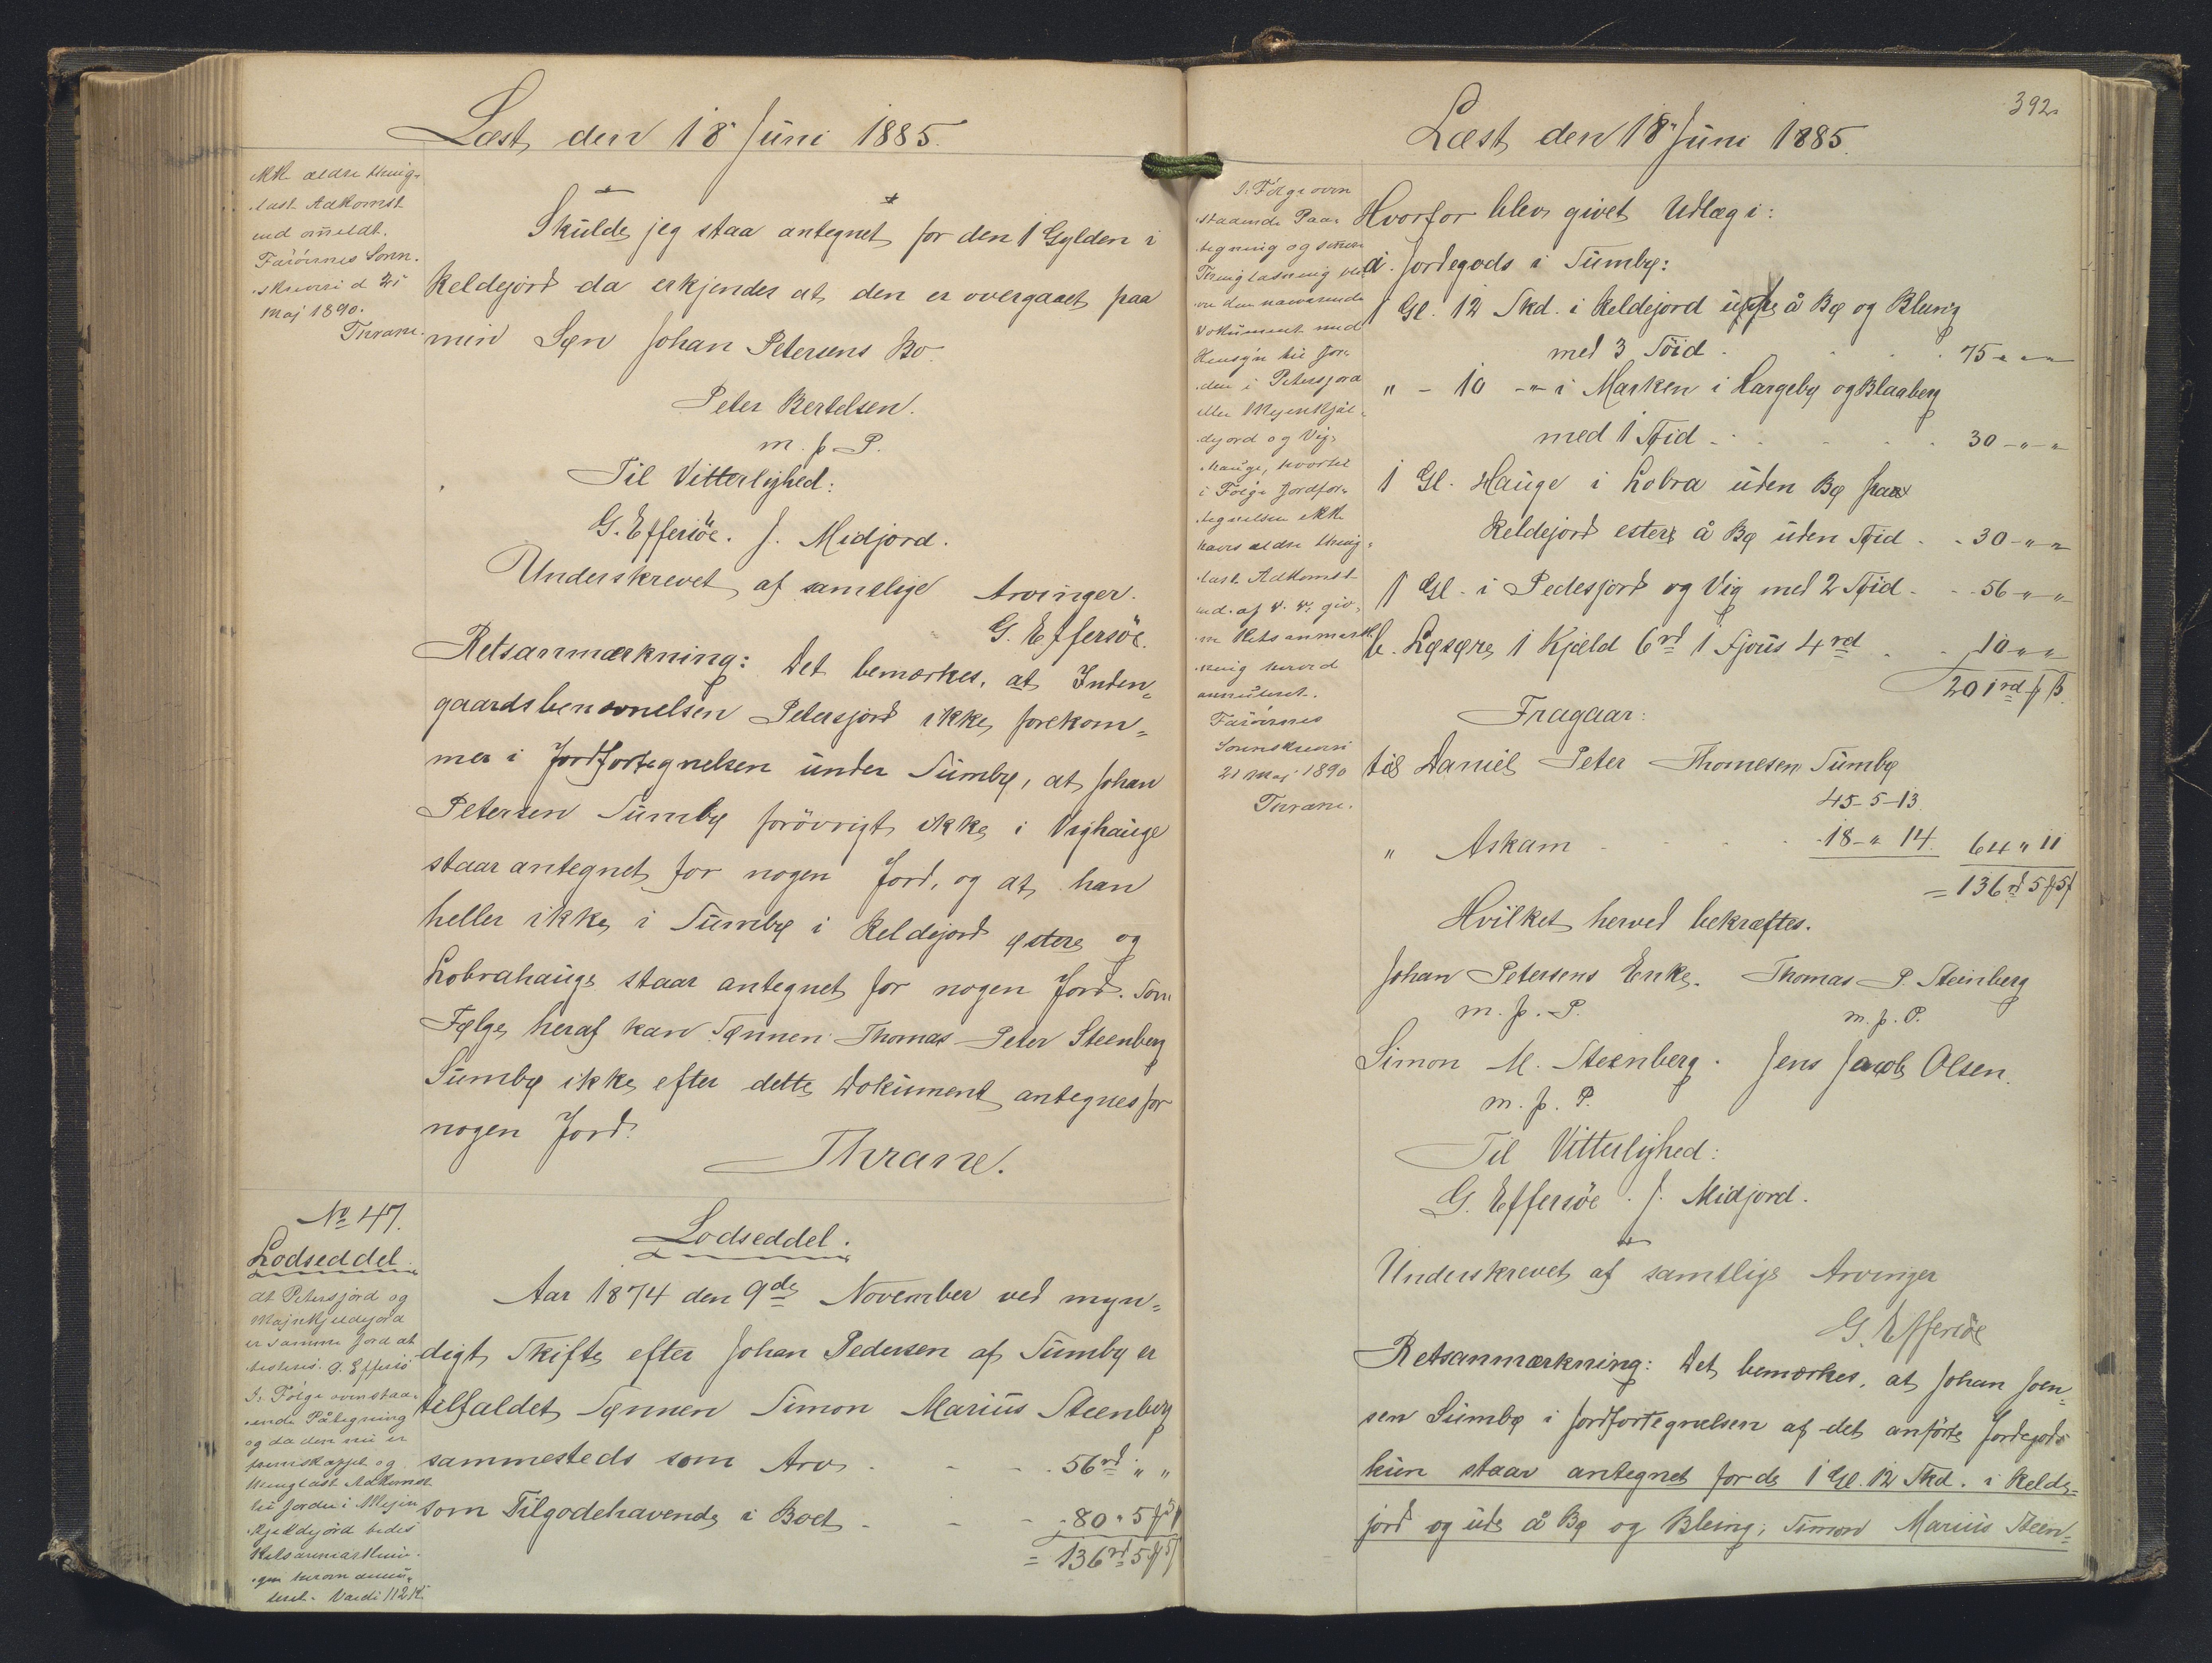 Læst den 18 Juni 1885.
ikke ældre thing-
læst Adkomst
end anmeldt.
Færöernes Soren-
skriveri d 21
Maj 1890.
Thrane.
Skulde jeg staa antegnet for den 1 Gylden i
Keldejord da erkjendes at den er overgaaet paa
min Søn Johan Petersens Bo.
Peter Bertelsen.
m. p. P.
Til Vitterlighed:
G. Effersöe. J. Midjord.
Underskrevet af samtlige Arvinger.
G. Effersöe.
Retsanmærkning: Det bemærkes, at Inden-
gaardsbenævnelsen Petersjord ikke forekom-
mer i Jordfortegnelsen under Sumbø, at Johan
Petersen Sumbø forövrigt ikke i Vighauge
staar antegnet for nogen Jord, og at han
heller ikke i Sumbø i Keldejord østere og
Lobrahauge staar antegnet for nogen Jord. Som
Følge heraf kan Sønnen Thomas Peter Steenberg
Sumbø ikke efter dette Dokument antegnes for
nogen Jord.
Thrane.
No 47.
Lodseddel.
At Petersjord og
Majnkjeldejord
er samme Jord at-
testeres. G. Effersö
I Følge ovenstaa-
ende Påtegning
og da den nu er
fremskaffet og
thinglæst Adkomst
til Jorden i Mejin
Kjeldejord bedes
Retsanmærknin-
gen herom annu-
leret. Værdi 112 K.
Lodseddel.
Aar 1874 den 9de November ved myn-
digt Skifte efter Johan Pedersen af Sumbø er
tilfaldet Sønnen Simon Marius Steenberg
sammesteds som Arv . - - . 56rd " "
som Tilgodehavende i Boet - - - 80 " 5 ß 5 f
= 136rd 5 ß 5 f
392
Læst den 18 Juni 1885.
I Følge oven
staaende Paa-
tegning og senere
Thinglæsning ved-
kommende nærværende
Dokument med
Hensyn til Jor-
den i Petersjord
eller Mejenkjæl-
dejord og Vig-
hauge, hvortil
i Følge Jordfor-
tegnelsen ikke
haves ældre thing-
læst Adkomst
end af d. d. giv-
ne Retsanmærk-
ning herved
annulleret.
Færöernes
Sorenskriveri
21 Maj 1890
Thrane.
Hvorfor blev givet Udlæg i:
a. Jordegods i Sumbø:
1 Gl. 12 Skd. i Keldejord uppe å Bø og Bleing
med 3 Töid . . . . 75 - " - "
" - 10 - " - i Marken i Hargeby og Blaaberg
med 1 Tøid - . . . . 30 - " - "
1 Gl. Hauge i Lobra uden Bø paa
Keldejord estere å Bø uden Tøid - . 30 - " - "
1 Gl. i Pedesjord og Vig med 2 Tøid - . . 56 - " - "
b. Løsøre, 1 Kjæld 6rd 1 Sjøus 4rd . . 10 " "
201rd ß
Fragaar:
til Daniel Peter Thomesen Sumbø
45 - 5 - 13.
" Askam . . . . 18 - " 14. 64 " 11
= 136rd 5 ß 5 f
Hvilket herved bekræftes.
Johan Petersens Enke. Thomas P. Steinberg
m. p. P. m. p. P.
Simon M. Steenberg. Jens Jacob Olsen.
m. p. P.
Til Vitterlighed:
G. Effersöe. J. Midjord.
Underskrevet af samtlige Arvinger
G. Effersöe
Retsanmærkning: Det bemærkes, at Johan Joen-
sen Sumbø i Jordfortegnelsen af det anförte Jordegods
kun staar antegnet for de 1 Gl. 12 Skd. i Kelde-
jord og ude å Bø og Bleing; Simon Marius Steen-